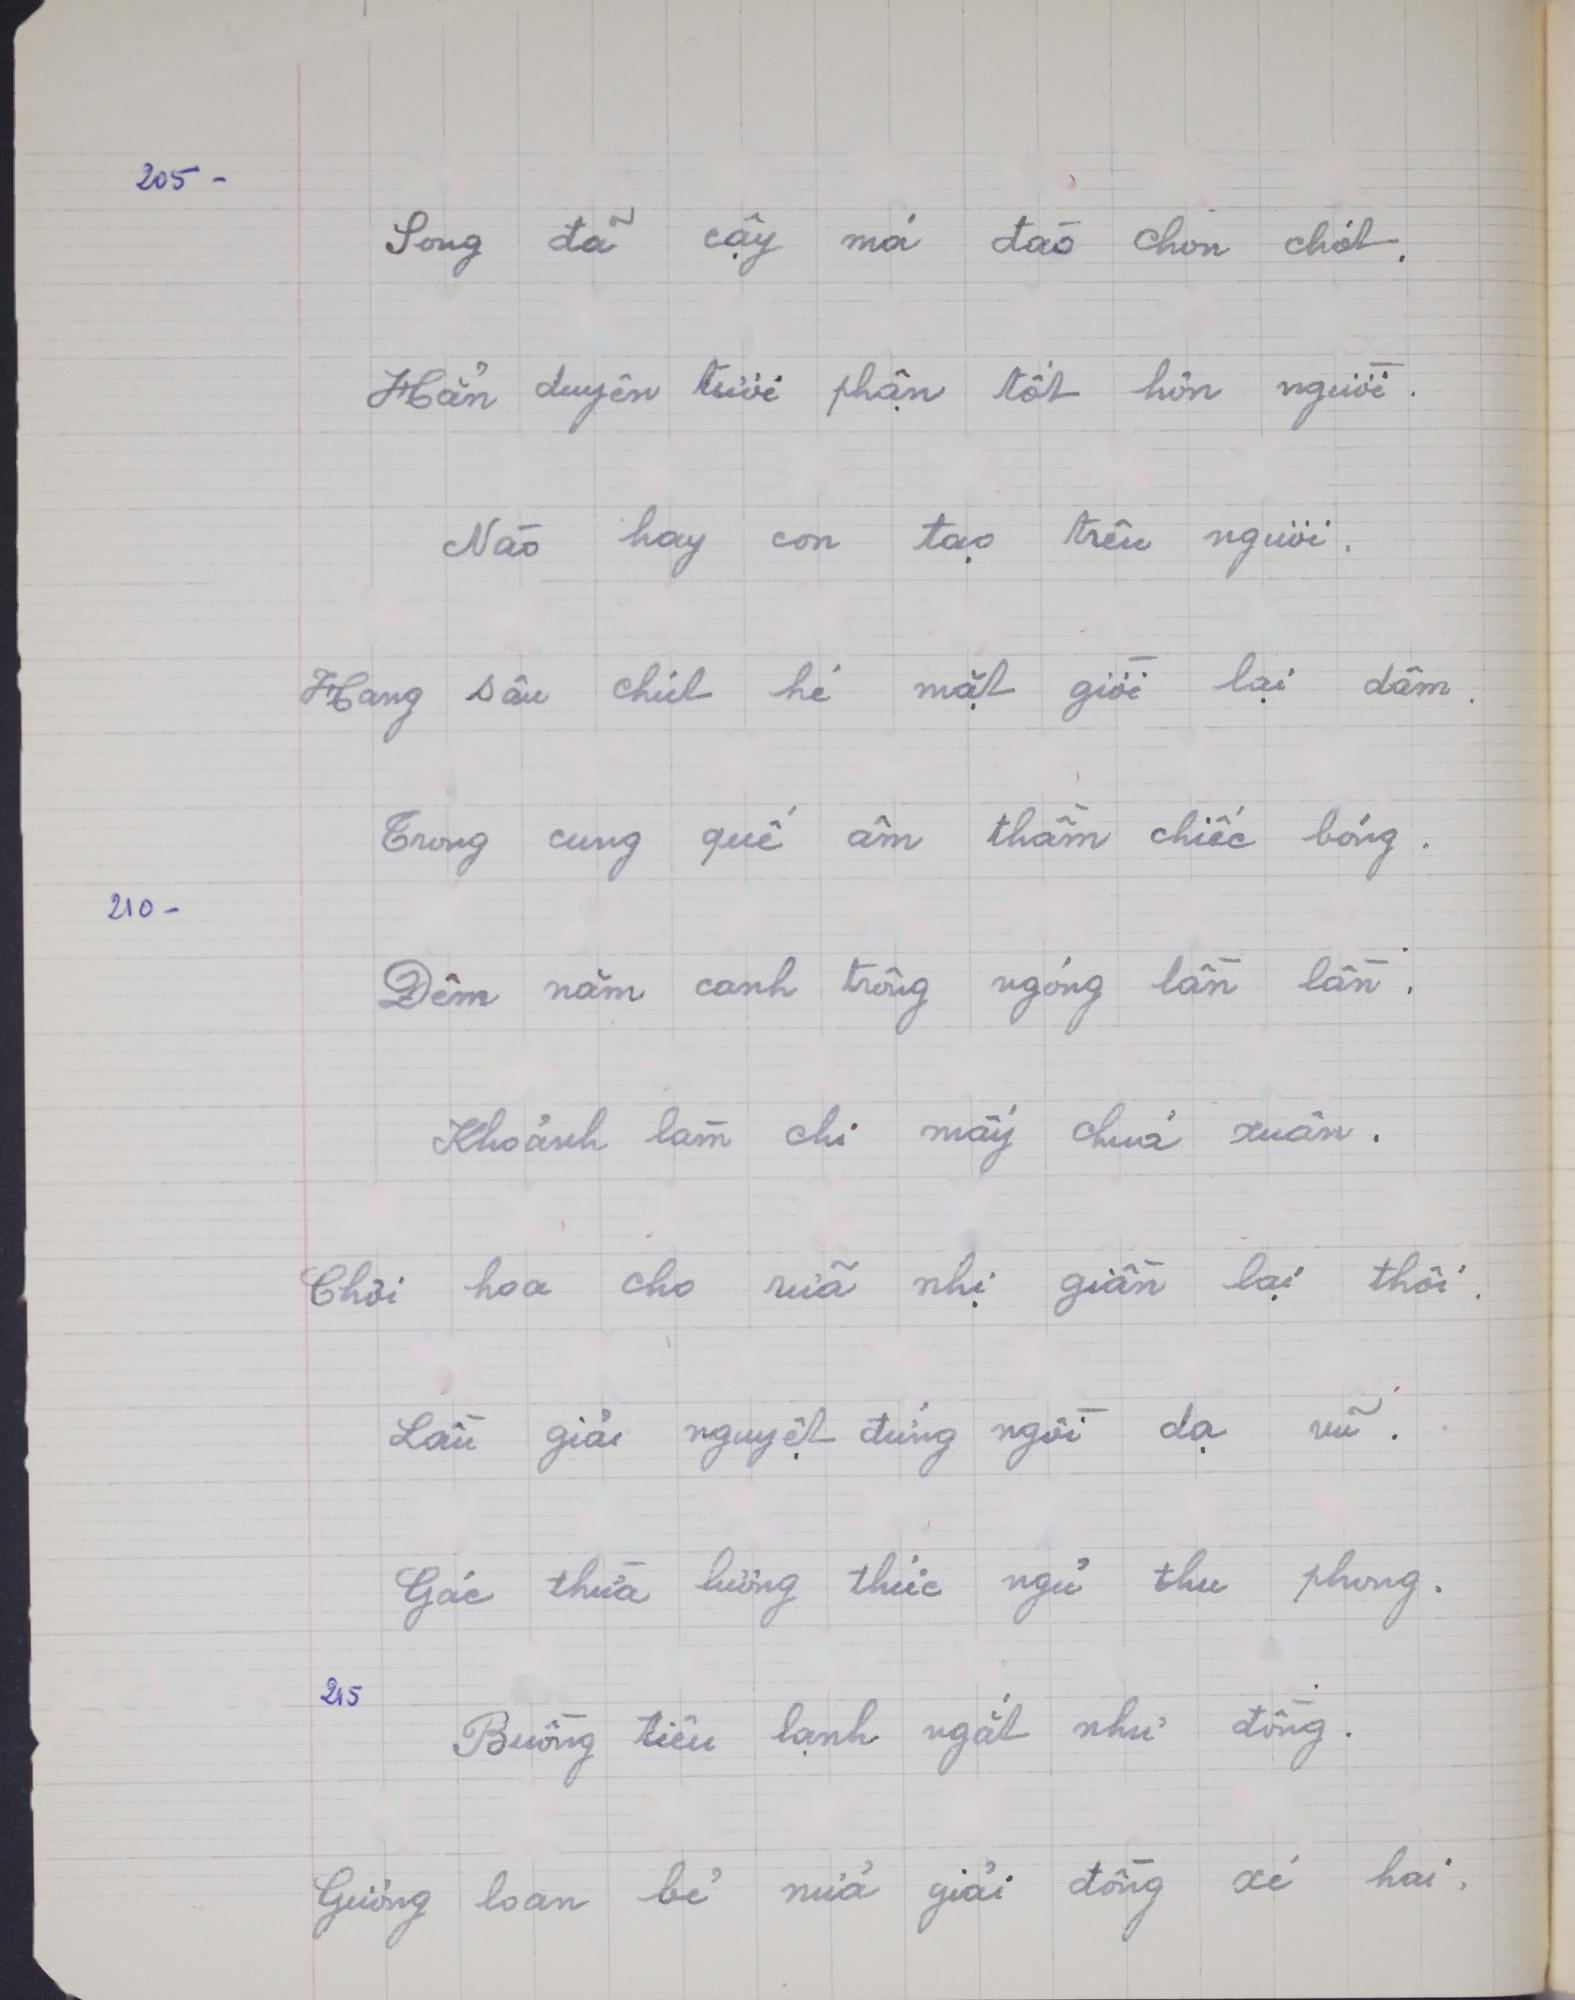 205 -
Song đã cậy má đào chon chót.
Hẳn duyên tươi phận tốt hơn người.
Nào hay con tạo trêu ngươi.
Hang sâu chút hé mặt giời lại dâm.
Trong cung quế âm thầm chiếc bóng.
210 -
Đêm năm canh trông ngóng lần lần.
Khoảnh làm chi mấy chuá xuân.
Chơi hoa cho rữa nhị giần lại thôi.
Lầu giải nguyệt đứng ngồi dạ vũ.
Gác thừa lương thức ngủ thu phong.
215
Buồng tiêu lạnh ngắt như đồng.
Gương loan bẻ nửa giải đồng xé hai.